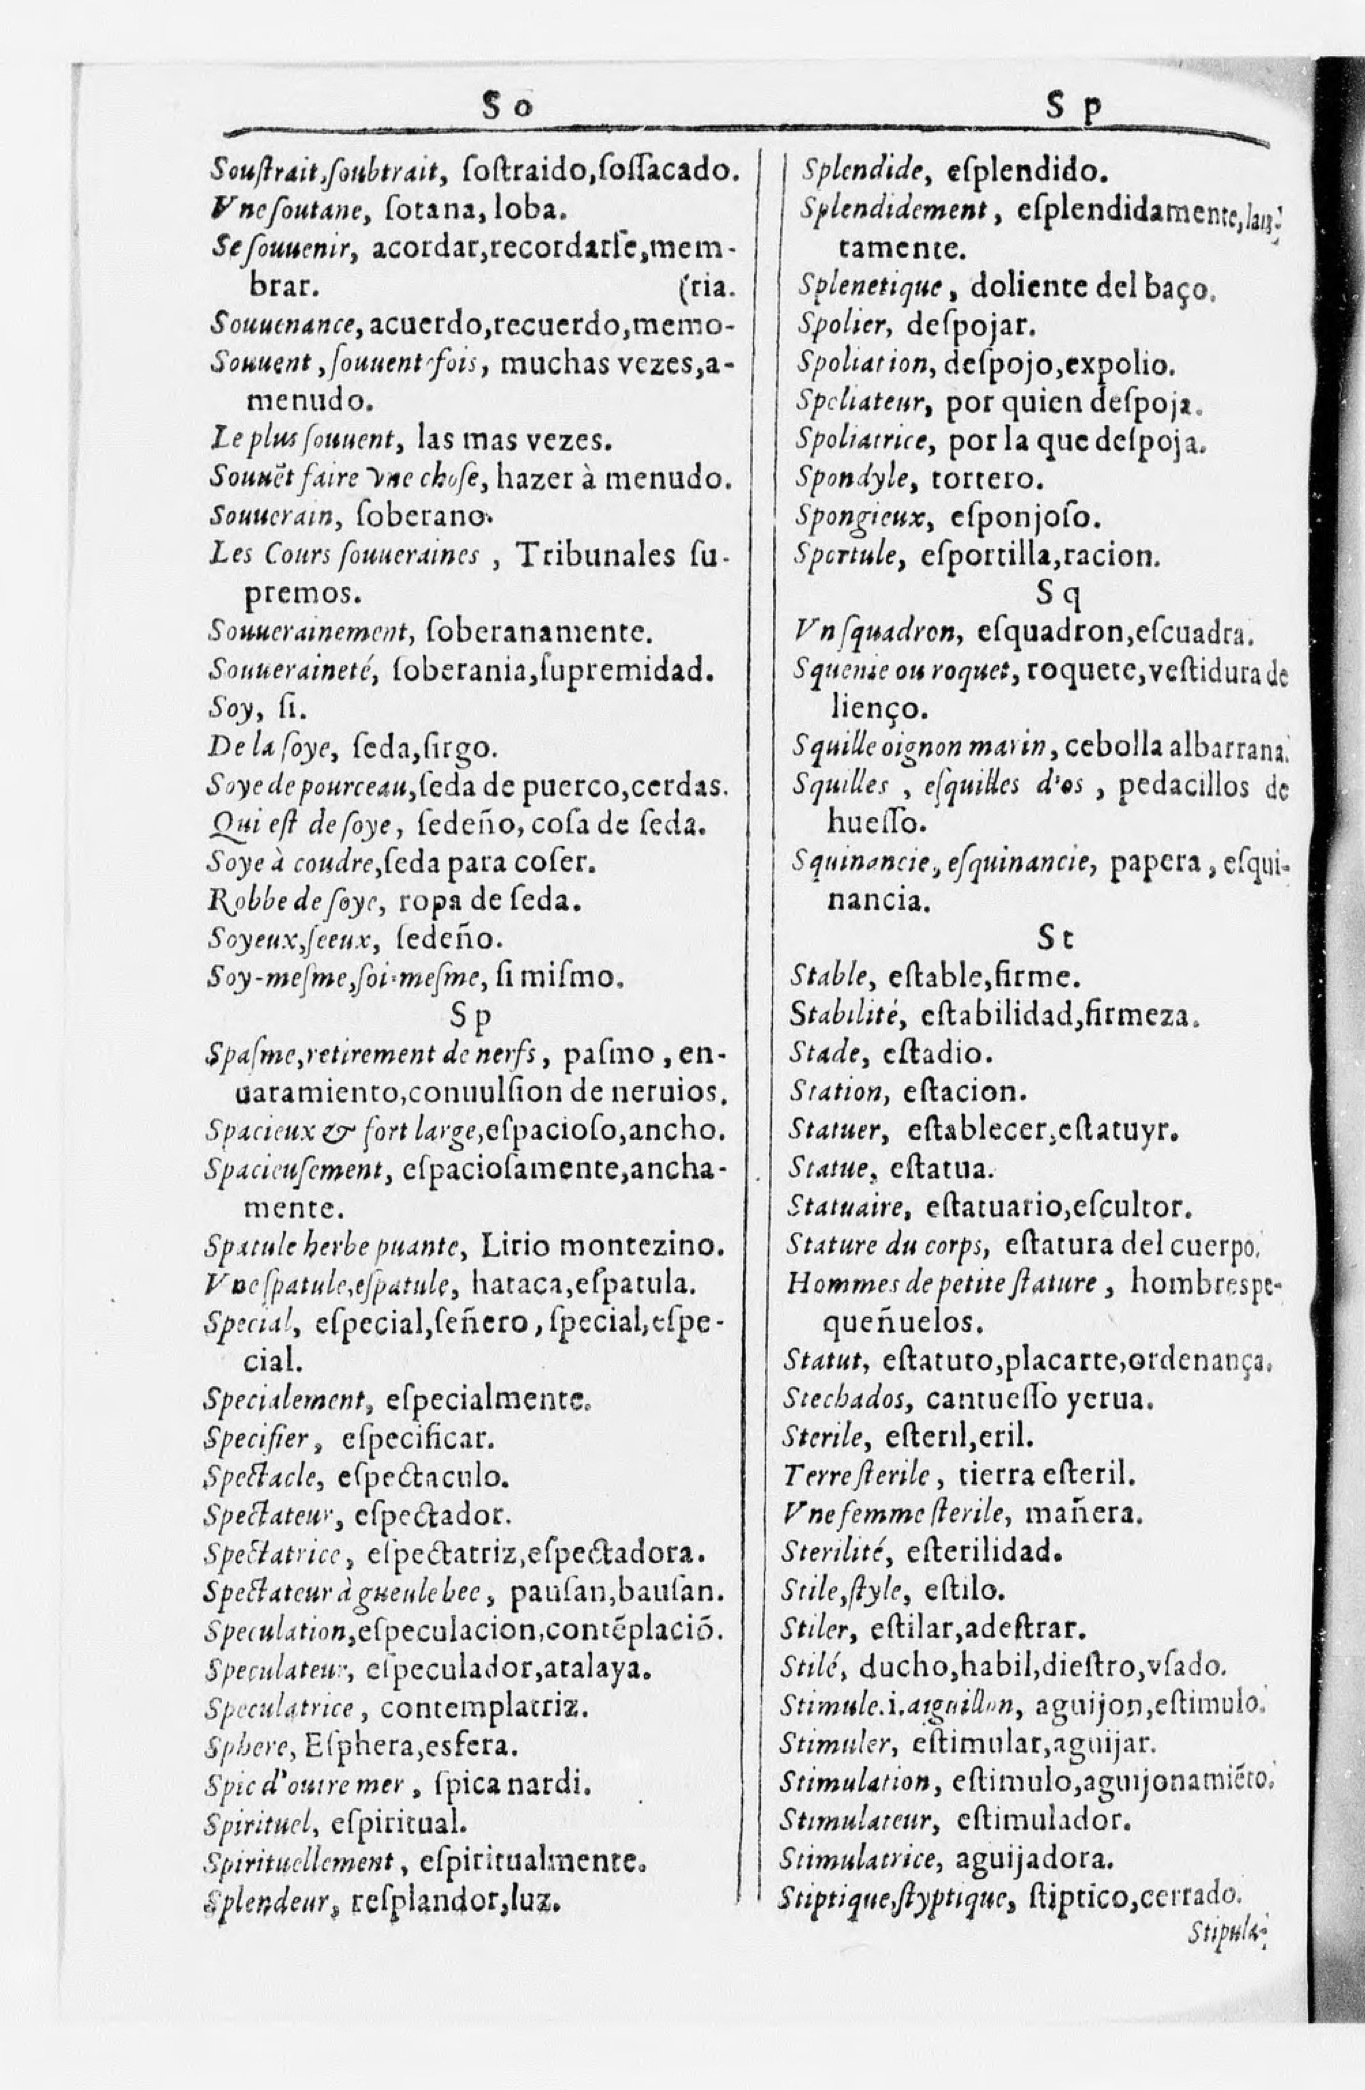 So
Souſtrait,ſoubtrait, ſoſtraido,ſoſſacado.
Vne ſoutane, ſotana, loba.
Se ſouuenir, acordar,recordarſe,mem-
brar. (ria.
Souuenance, acuerdo,recuerdo,memo-
Souuent, ſouuent-fois, muchas vezes,a-
menudo.
Le plus ſouuent, las mas vezes.
Souuẽt faire vne choſe, hazer à menudo.
Souuerain, ſoberano.
Les Cours ſouueraines, Tribunales ſu-
premos.
Souuerainement, ſoberanamente.
Souueraineté, ſoberania,ſupremidad.
Soy, ſi.
De la ſoye, ſeda,ſirgo.
Soye de pourceau,ſeda de puerco,cerdas.
Qui eſt de ſoye, ſedeño, coſa de ſeda.
Soye à coudre,ſeda para coſer.
Robbe de ſoye, ropa de ſeda.
Soyeux,ſeeux, ſedeño.
Soy-meſme,ſoi-meſme, ſi miſmo.
Sp
Spaſme,retirement de nerfs, paſmo, en-
uaramiento,conuulſion de neruios.
Spacieux & fort large,eſpacioſo,ancho.
Spacieuſement, eſpacioſamente,ancha-
mente.
Spatule herbe puante, Lirio montezino.
Vne ſpatule,eſpatule, hataca,eſpatula.
Special, eſpecial,ſeñero, ſpecial,eſpe-
cial.
Specialement, eſpecialmente.
Specifier, eſpecificar.
Spectacle, eſpectaculo.
Spectateur, eſpectador.
Spectatrice, eſpectatriz,eſpectadora.
Spectateur à gueule bee, pauſan,bauſan.
Speculation,eſpeculacion,contẽplaciõ.
Speculateur, eſpeculador,atalaya.
Speculatrice, contemplatriz.
Sphere, Eſphera,esfera.
Spic d'outre mer, ſpica nardi.
Spirituel, eſpiritual.
Spirituellement, eſpiritualmente.
Splendeur, reſplandor,luz.
Sp
Splendide, eſplendido.
Splendidement, eſplendidamente,
tamente.
Splenetique, doliente del baço.
Spolier, deſpojar.
Spoliation, deſpojo,expolio.
Spoliateur, por quien deſpoja.
Spoliatrice, por la que deſpoja.
Spondyle, tortero.
Spongieux, eſponjoſo.
Sportule, eſportilla,racion.
Sq
Vn ſquadron, eſquadron,eſcuadra.
Squenie ou roquet, roquete,veſtidura de
lienço.
Squille oignon marin, cebolla albarrana.
Squilles, eſquilles d'os, pedacillos de
hueſſo.
Squinancie, eſquinancie, papera, eſqui-
nancia.
St
Stable, eſtable,firme.
Stabilité, eſtabilidad,firmeza.
Stade, eſtadio.
Station, eſtacion.
Statuer, eſtablecer,eſtatuyr.
Statue, eſtatua.
Statuaire, eſtatuario,eſcultor.
Stature du corps, eſtatura del cuerpo.
Hommes de petite ſtature, hombres pe-
queñuelos.
Statut, eſtatuto,placarte,ordenança.
Stechados, cantueſſo yerua.
Sterile, eſteril,eril.
Terre ſterile, tierra eſteril.
Vne femme ſterile, mañera.
Sterilité, eſterilidad.
Stile,ſtyle, eſtilo.
Stiler, eſtilar,adeſtrar.
Stilé, ducho,habil,dieſtro,vſado.
Stimule.i.aiguillon, aguijon,eſtimulo.
Stimuler, eſtimular,aguijar.
Stimulation, eſtimulo,aguijonamiẽto.
Stimulateur, eſtimulador.
Stimulatrice, aguijadora.
Stiptique,ſtyptique, ſtiptico,cerrado.
Stipula-